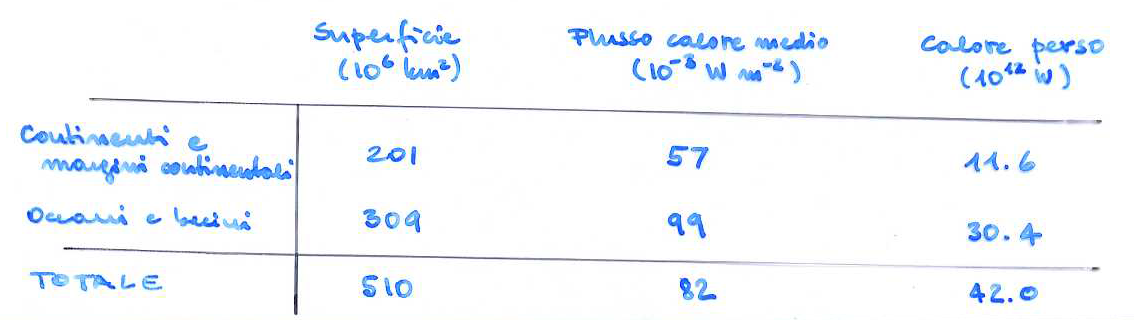 Superficie Flusso calore medio Calore perso
(10⁶ km²) (10⁻³ W m⁻²) (10¹² W)
Continenti e
margini continentali 201 57 11.6
Oceani e bacini 309 99 30.4
TOTALE 510 82 42.0